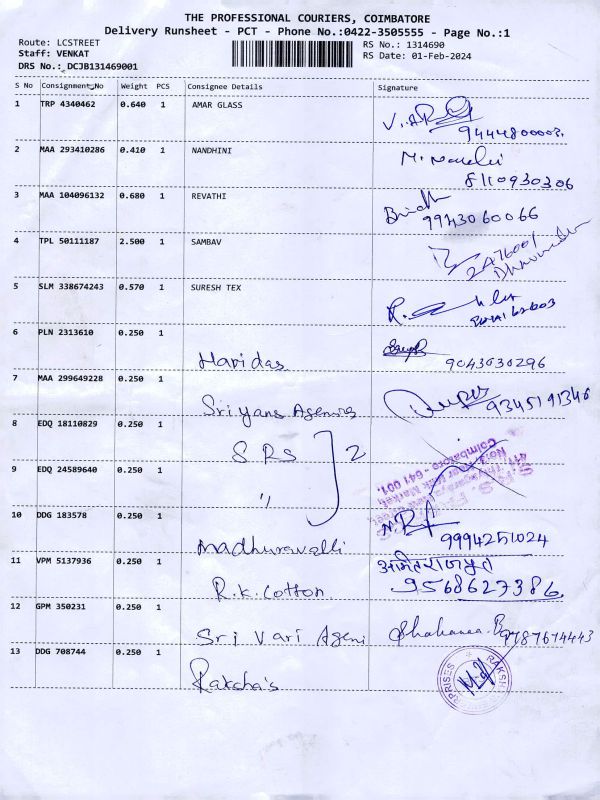 THE PROFESSIONAL COURIERS, COIMBATORE
Delivery Runsheet - PCT - Phone No.:0422-3505555 - Page No.:1
Route: LCSTREET
Staff: VENKAT
DRS No.: DCJB131469001
RS No.: 1314690
RS Date: 01-Feb-2024
S No Consignment No Weight PCS Consignee Details Signature
1 TRP 4340462 0.640 1 AMAR GLASS
9444800003.
2 MAA 293410286 0.410 1 NANDHINI
8110930306
3 MAA 104096132 0.680 1 REVATHI
9943060066
4 TPL 50111187 2.500 1 SAMBAV
5 SLM 338674243 0.570 1 SURESH TEX
6 PLN 2313610 0.250 1 Haridas
9043030296
7 MAA 299649228 0.250 1 Sriyans Agencies
9345191346
8 EDQ 18110829 0.250 1 SRS 2
9 EDQ 24589640 0.250 1 "
Coimbatore - 641 001.
10 DDG 183578 0.250 1 Madhuravalli
9994251024
11 VPM 5137936 0.250 1 R.K. Cotton
9568627386
12 GPM 350231 0.250 1 Sri Vari Ageni
9787674443
13 DDG 708744 0.250 1 Raksha's